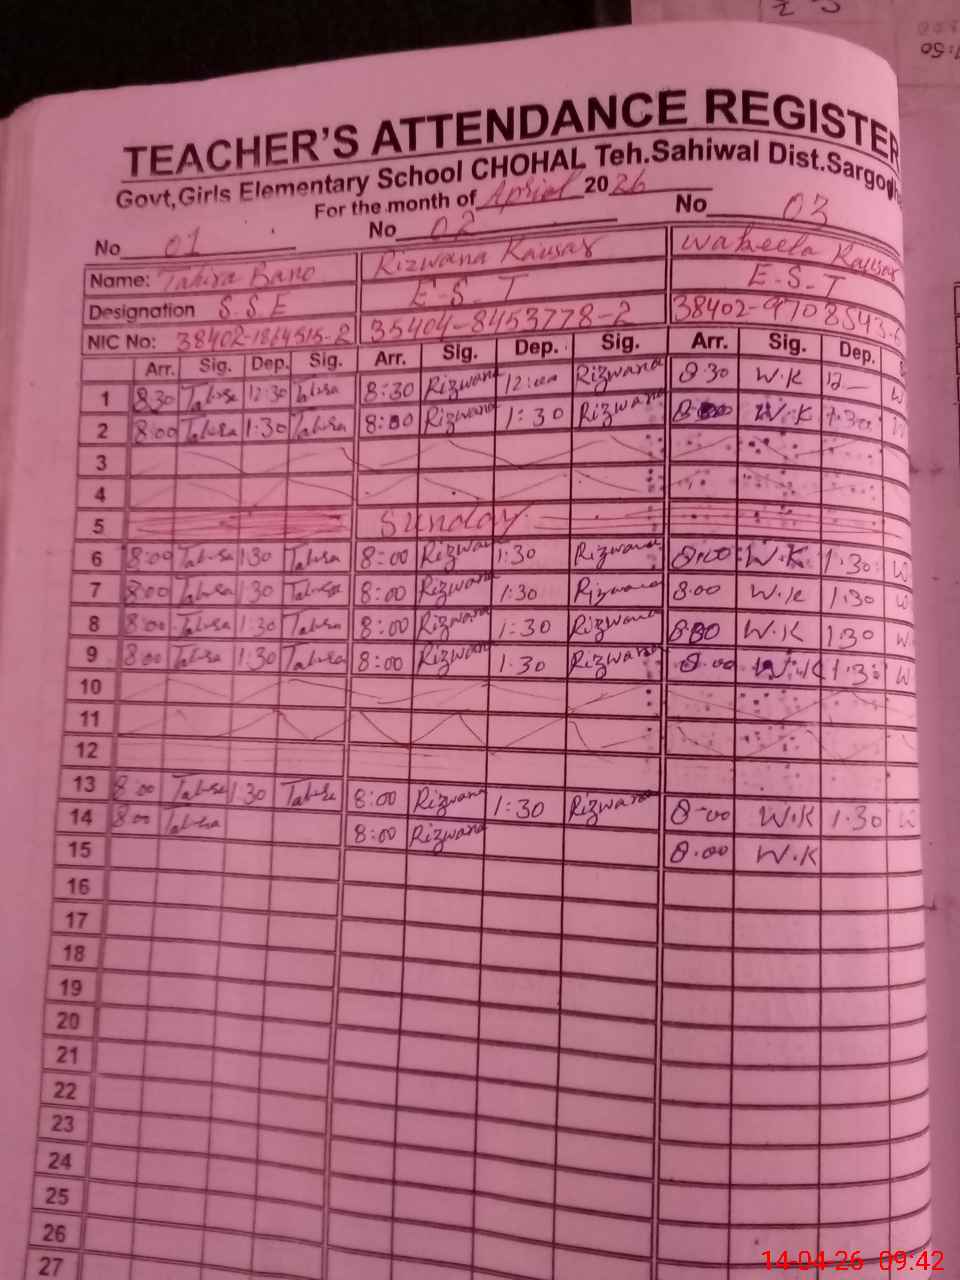 TEACHER'S ATTENDANCE REGISTER
Govt,Girls Elementary School CHOHAL Teh.Sahiwal Dist.Sargodha
For the month of April 2026
No 01 No 02 No 03
Name: Tahira Bano Rizwana Kausar Wakeela Kausar
Designation S.S.E E-S-T E-S-T
NIC No: 35404-8453778-2
Arr. Sig. Dep. Sig. Arr. Sig. Dep. Sig. Arr. Sig. Dep.
1 8:30 Tahira 12:30 Tahira 8:30 Rizwana 12:00 Rizwana 8:30 W.K 12
2 8:00 Tahira 1:30 Tahira 8:00 Rizwana 1:30 Rizwana W.K 1:30
3
4
5 Sunday
6 8:00 Tahira 1:30 Tahira 8:00 Rizwana 1:30 Rizwana 8:00 W.K 1:30 W
7 8:00 Tahira 1:30 Tahira 8:00 Rizwana 1:30 Rizwana 8:00 W.K 1:30 W
8 8:00 Tahira 1:30 Tahira 8:00 Rizwana 1:30 Rizwana W.K 1:30 W
9 8:00 Tahira 1:30 Tahira 8:00 Rizwana 1:30 Rizwana 8:00 W.K 1:30 W
10
11
12
13 8:00 Tahira 1:30 Tahira 8:00 Rizwana 1:30 Rizwana 8:00 W.K 1:30
14 8:00 Tahira 8:00 Rizwana 8:00 W.K
15
16
17
18
19
20
21
22
23
24
25
26
27
14-04-26 09:42